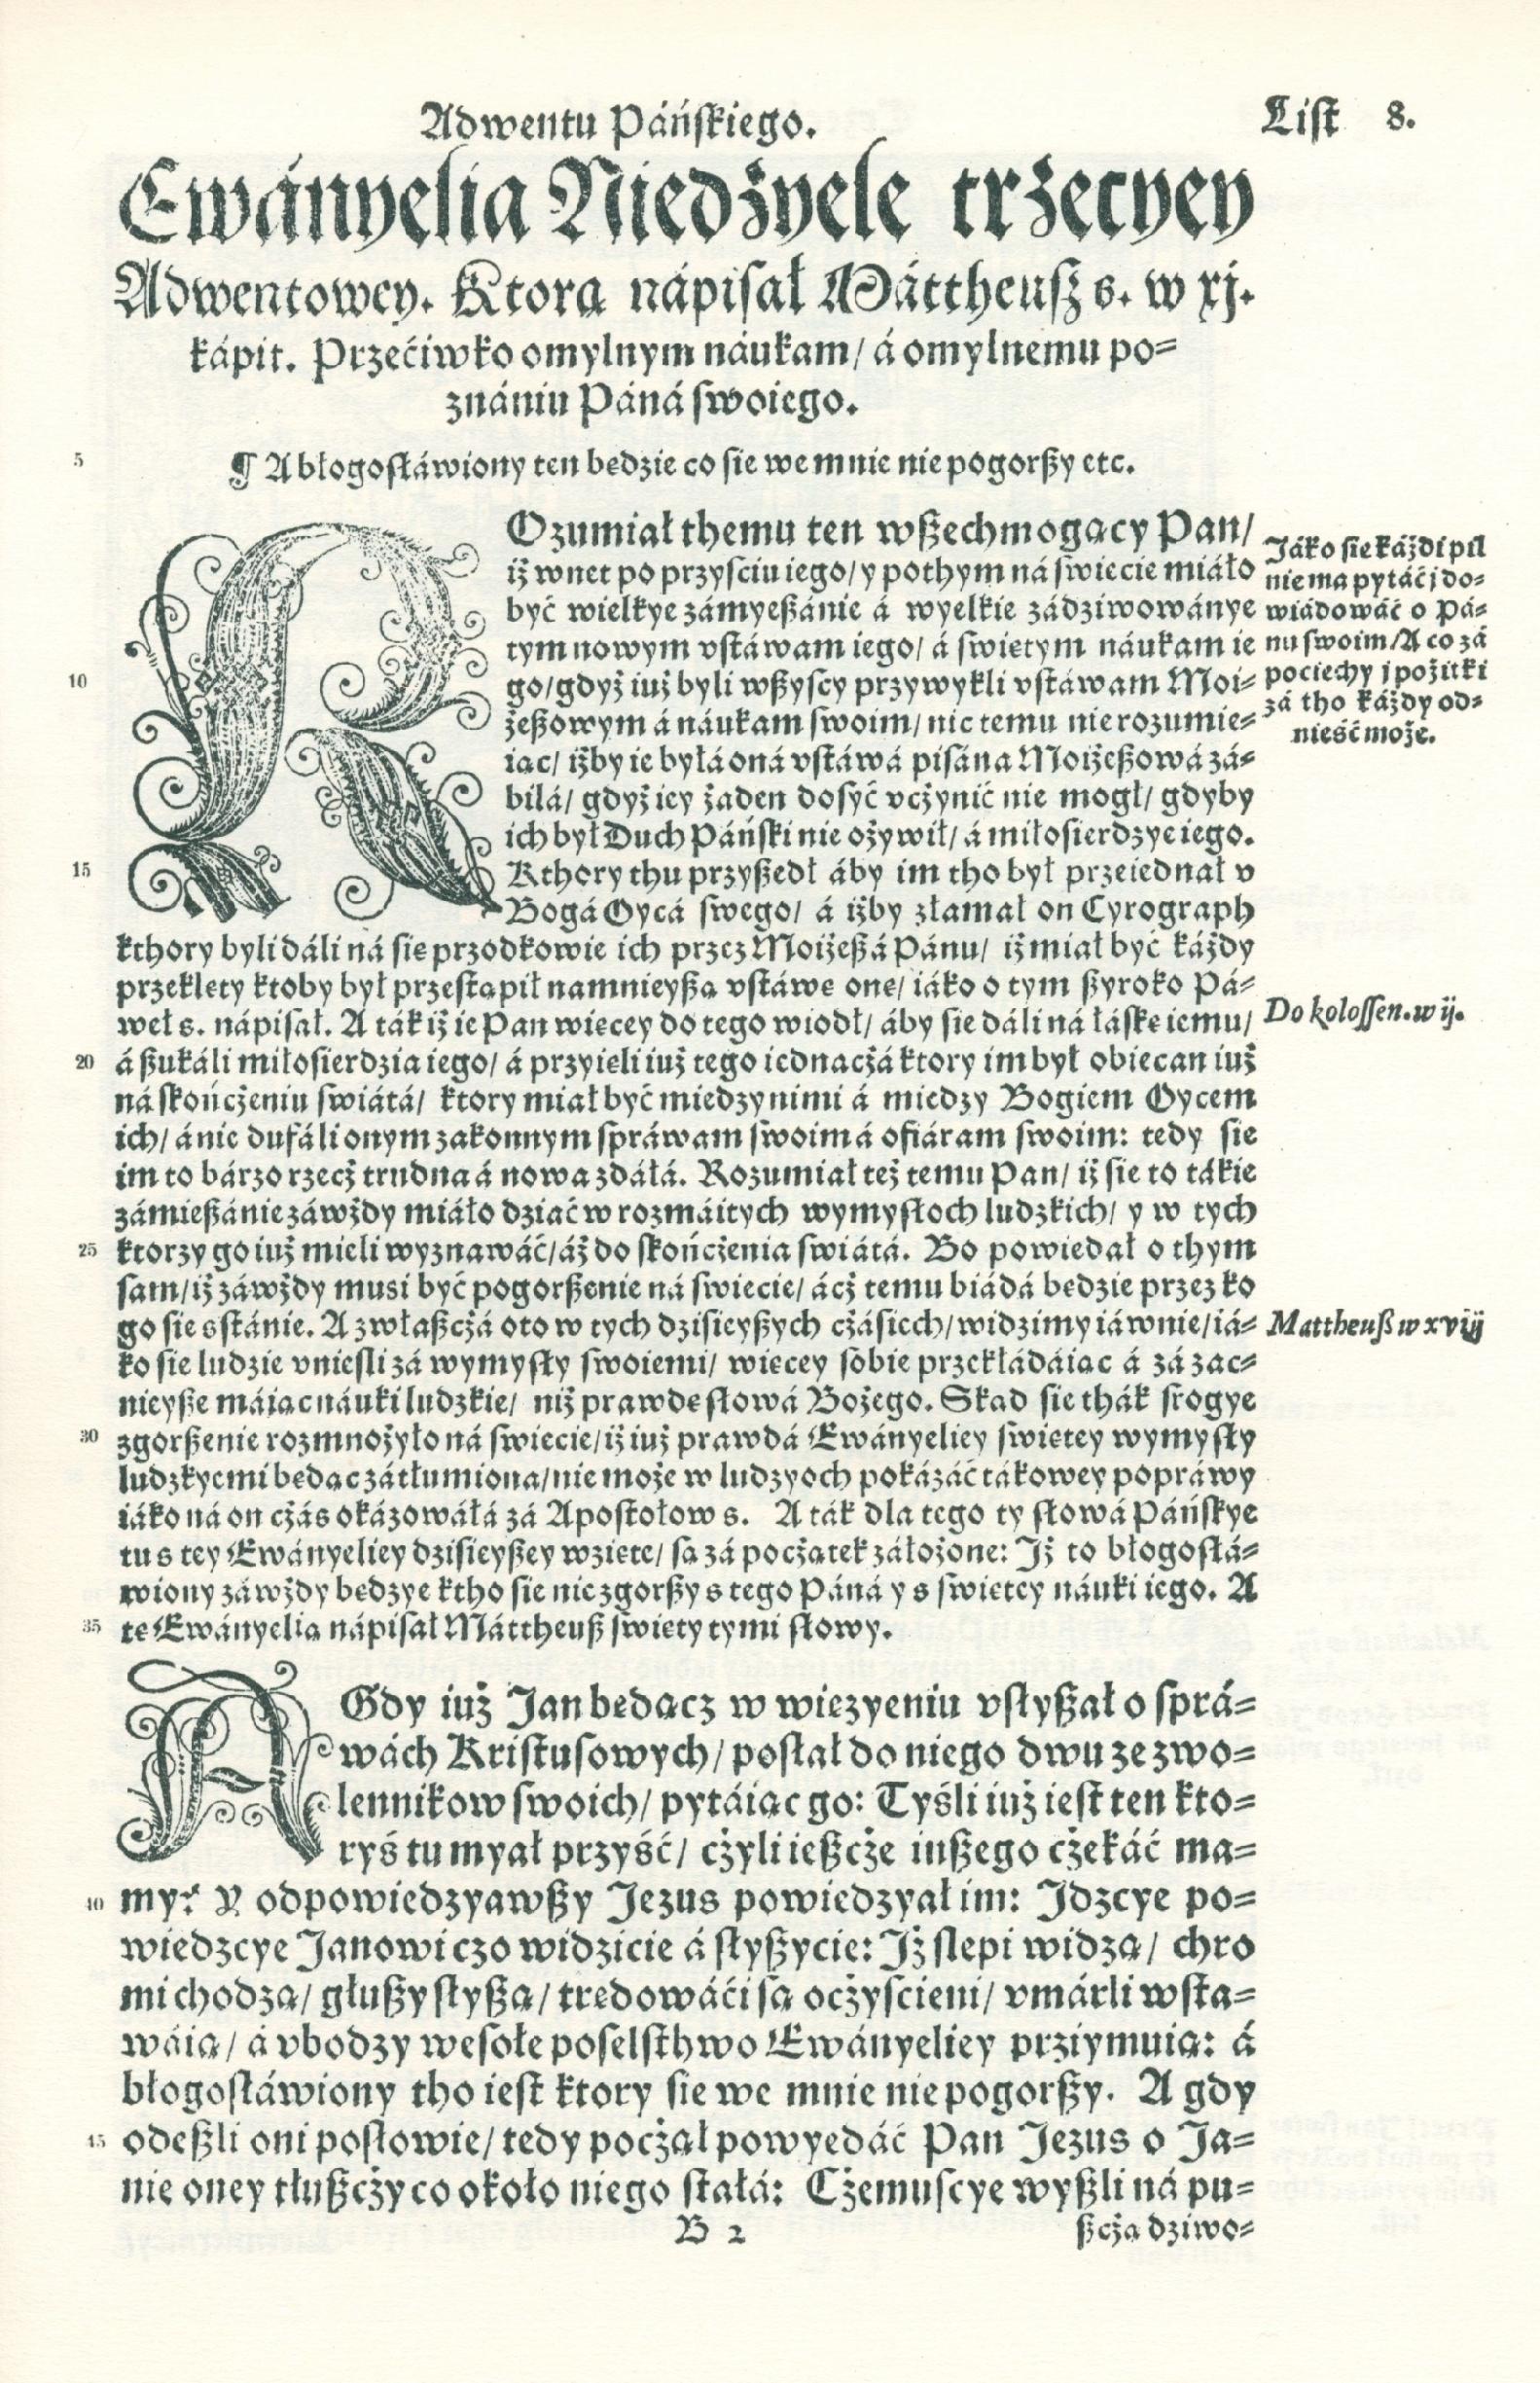 Adwentu Páńſkiego.
Liſt 8.
Ewányelia Niedźyele trżecyey
Adwentowey. Ktorą nápiſał Máttheuſz s. w xj.
kápit. Przećiwko omylnym náukam/ á omylnemu po⸗
znániu Páná ſwoiego.
5
¶ A błogoſłáwiony ten bedzie co ſie we mnie nie pogorßy etc.
ROzumiał themu ten wßechmogący Pan/
iż wnet po przyſciu iego/ y pothym ná ſwiecie miáło
być wielkye zámyeßánie á wyelkie zádziwowánye
tym nowym vſtáwam iego/ á ſwietym náukam ie
10
go/ gdyż iuż byli wßyſcy przywykli vſtáwam Moi⸗
żeßowym á náukam ſwoim/ nic temu nie rozumie⸗
iąc/ iżby ie byłá oná vſtáwá piſána Moiżeßowá zá⸗
biłá/ gdyż iey żaden doſyć vcżynić nie mogł/ gdyby
ich był Duch Páńſki nie ożywił/ á miłoſierdzye iego.
15
Kthory thu przyßedł áby im tho był przeiednał v
Bogá Oycá ſwego/ á iżby złamał on Cyrograph
kthory byli dáli ná ſie przodkowie ich przez Moiżeßá Pánu/ iż miał być káżdy
przeklety ktoby był przeſtąpił namnieyßą vſtáwe one/ iáko o tym ßyroko Pá⸗
weł s. nápiſał. A ták iż ie Pan wiecey do tego wiodł/ áby ſie dáli ná łáſke iemu/
20
á ßukáli miłoſierdzia iego/ á przyieli iuż tego iednácżá ktory im był obiecan iuż
ná ſkońcżeniu ſwiátá/ ktory miał być miedzy nimi á miedzy Bogiem Oycem
ich/ á nie dufáli onym zakonnym ſpráwam ſwoim á ofiáram ſwoim: tedy ſie
im to bárzo rzecż trudna á nowa zdáłá. Rozumiał też temu Pan/ iż ſie to tákie
zámießánie záwżdy miáło dziać w rozmáitych wymyſłoch ludzkich/ y w tych
25
ktorzy go iuż mieli wyznawáć/ áż do ſkońcżenia ſwiátá. Bo powiedał o thym
ſam/ iż záwżdy muſi być pogorßenie ná ſwiecie/ ácż temu biádá bedzie przez ko
go ſie sſtánie. A zwłaßcżá oto w tych dziſieyßych cżáſiech/ widzimy iáwnie/ iá⸗
ko ſie ludzie vnieſli zá wymyſły ſwoiemi/ wiecey ſobie przekłádáiąc á zá zac⸗
nieyße máiąc náuki ludzkie/ niż prawde ſłowá Bożego. Skąd ſie thák ſrogye
30
zgorßenie rozmnożyło ná ſwiecie/ iż iuż prawdá Ewányeliey ſwietey wymyſły
ludzkyemi bedąc zátłumiona/ nie może w ludzyoch pokázáć tákowey popráwy
iáko ná on cżás okázowáłá zá Apoſtołow s. A ták dla tego ty ſłowá Páńſkye
tu s tey Ewányeliey dziſieyßey wziete/ ſą zá pocżątek záłożone: Iż to błogoſłá⸗
wiony záwżdy bedzye ktho ſie nie zgorßy s tego Páná y s ſwietey náuki iego. A
35
te Ewányelią nápiſał Máttheuß ſwiety tymi ſłowy.
Jáko ſie káżdi pil
nie ma pytáć j do⸗
wiádowáć o Pá⸗
nu ſwoim/ A co zá
pociechy j pożitki
zá tho káżdy od⸗
nieść może.
Do koloſſen. w ij.
Mattheuß w xviij
A Gdy iuż Jan bedącz w wiezyeniu vſłyßał o ſprá⸗
wách Kriſtuſowych/ poſłał do niego dwu ze zwo⸗
lennikow ſwoich/ pytáiąc go: Tyśli iuż ieſt ten kto⸗
ryś tu myał przyść/ cżyli ießcże inßego cżekáć ma⸗
40
my? Y odpowiedzyawßy Jezus powiedzyał im: Idzcye po⸗
wiedzcye Janowi czo widzicie á ſłyßycie: Iż ſlepi widzą/ chro
mi chodzą/ głußy ſłyßą/ trędowáći ſą ocżyſcieni/ vmárli wſta⸗
wáią/ á vbodzy weſołe poſelſthwo Ewányeliey prziymuią: á
błogoſłáwiony tho ieſt ktory ſie we mnie nie pogorßy. A gdy
45
odeßli oni poſłowie/ tedy pocżął powyedáć Pan Jezus o Ja⸗
nie oney tłußcży co około niego ſtałá: Cżemuſcye wyßli ná pu⸗
B 2
ßcżą dziwo⸗